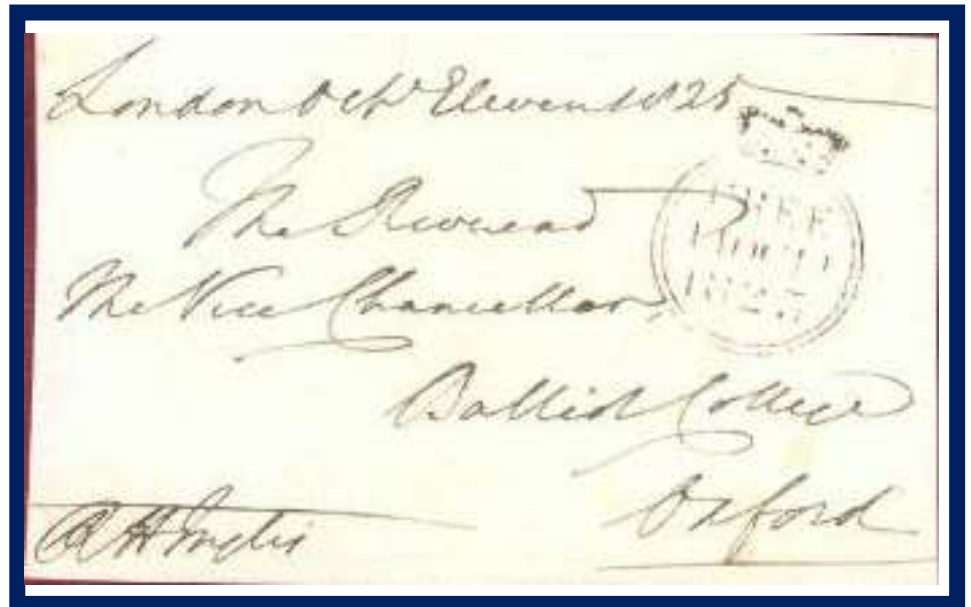 London Octr Eleven 1825
The Reverend
The Vice Chancellor
Balliol College
Oxford
R H Inglis
FREE